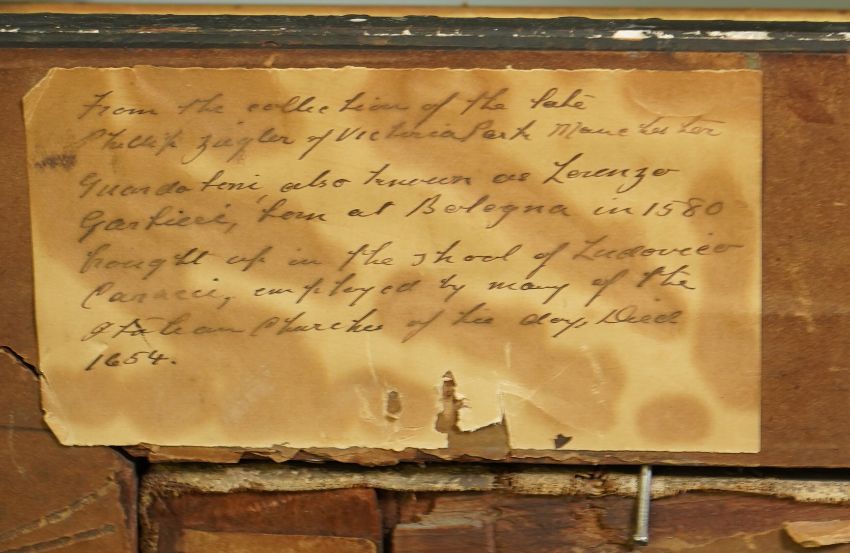 From the collection of the late
Phillip Ziegler of Victoria Park Manchester
Guardotoni, also known as Lorenzo
Garbieri, born at Bologna in 1580
brought up in the shool of Ludovico
Caracci, employed by many of the
Italian Churches of his day, Died
1654.